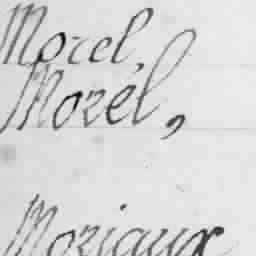 Morel,
Morel,
Moriaux